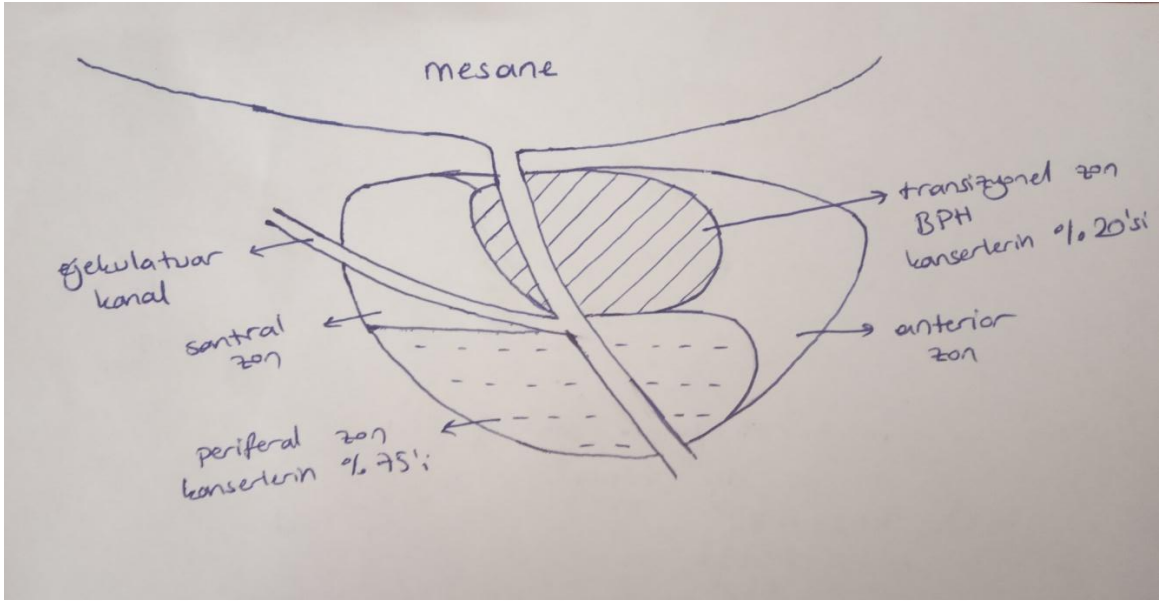 mesane
transizyonel zon
BPH
kanserlerin %20'si
ejekulatuar
kanal
santral
zon
anterior
zon
periferal zon
kanserlerin %75'i